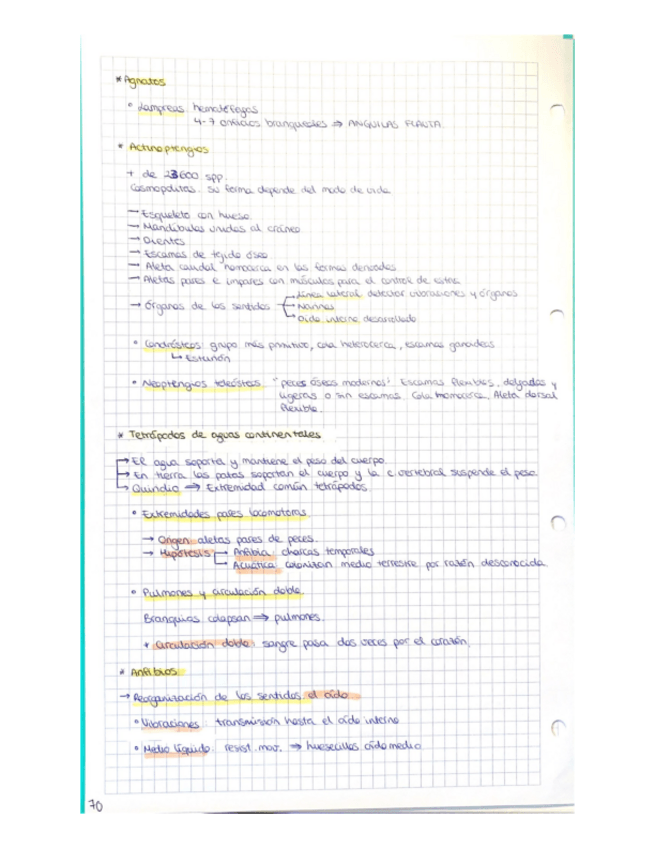 * Agnatos
° Lampreas: hematófagas
4-7 orificios branqueales ⇒ ANGUILAS FLAUTA
* Actinopterigios
+ de 23600 spp.
Cosmopolitas. Su forma depende del modo de vida
→ Esqueleto con hueso
→ Mandíbulas unidas al cráneo
→ Dientes
→ Escamas de tejido óseo
→ Aleta caudal homocerca en las formas derivadas
→ Aletas pares e impares con músculos para el control de estas
→ Órganos de los sentidos
Línea lateral: detectar vibraciones y órganos
Narinas
Oído interno desarrollado
• Condrósteos: grupo más primitivo, cola heterocerca, escamas ganoideas
↳ Esturión
• Neopterigios teleósteos: "peces óseos modernos". Escamas flexibles, delgadas y
ligeras o sin escamas. Cola homocerca, Aleta dorsal
flexible.
* Tetrápodos de aguas continentales
→ El agua soporta y mantiene el peso del cuerpo.
→ En tierra las patas soportan el cuerpo y la c. vertebral suspende el peso.
→ Quiridio ⇒ Extremidad común tetrápodos.
• Extremidades pares locomotoras.
→ Origen: aletas pares de peces.
→ Hipótesis
→ Anfibia: charcas temporales
Acuática: colonizan medio terrestre por razón desconocida
• Pulmones y circulación doble.
Branquias colapsan ⇒ pulmones.
* Circulación doble: sangre pasa dos veces por el corazón.
* Anfibios
→ Reorganización de los sentidos: el oído
• Vibraciones: transmisión hasta el oído interno
• Medio líquido: resist. mov. ⇒ huesecillos oído medio
70